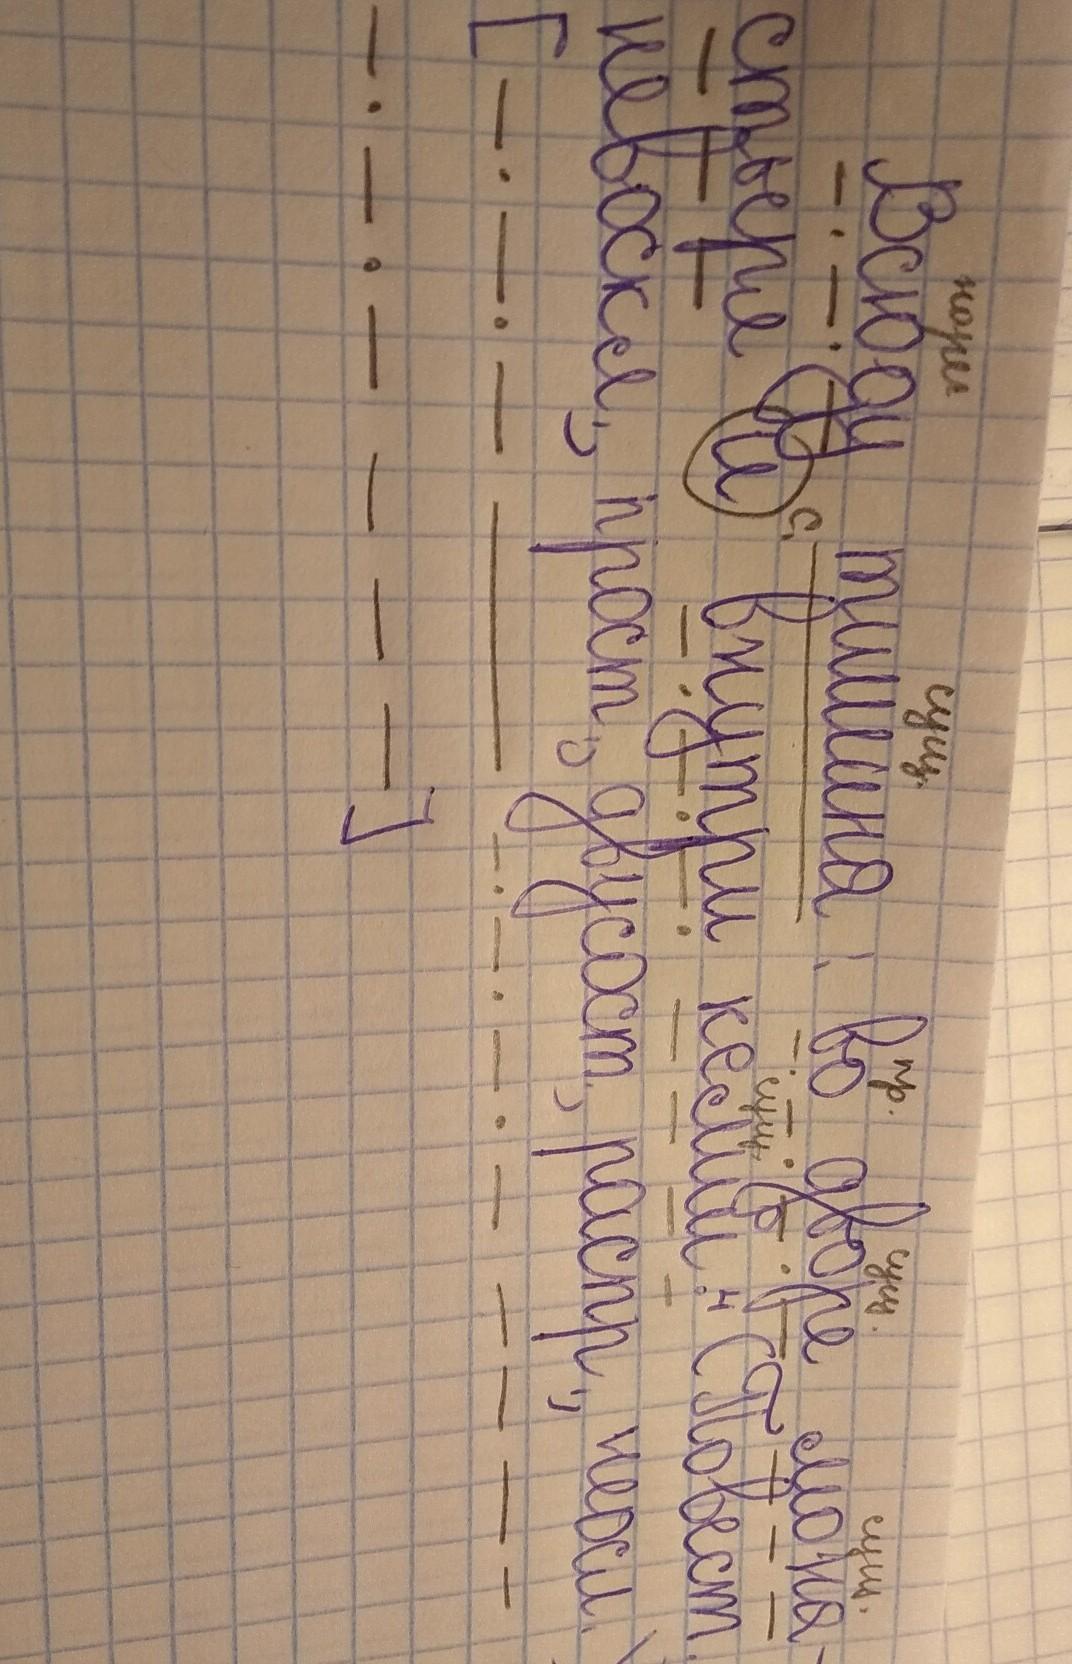 нареч сущ. пр. сущ. сущ.
Всюду тишина: во дворе мона-
с. сущ.
стыре и внутри кельи.4 (Повест.,
невоскл., прост., двусост., распр., неосл.)